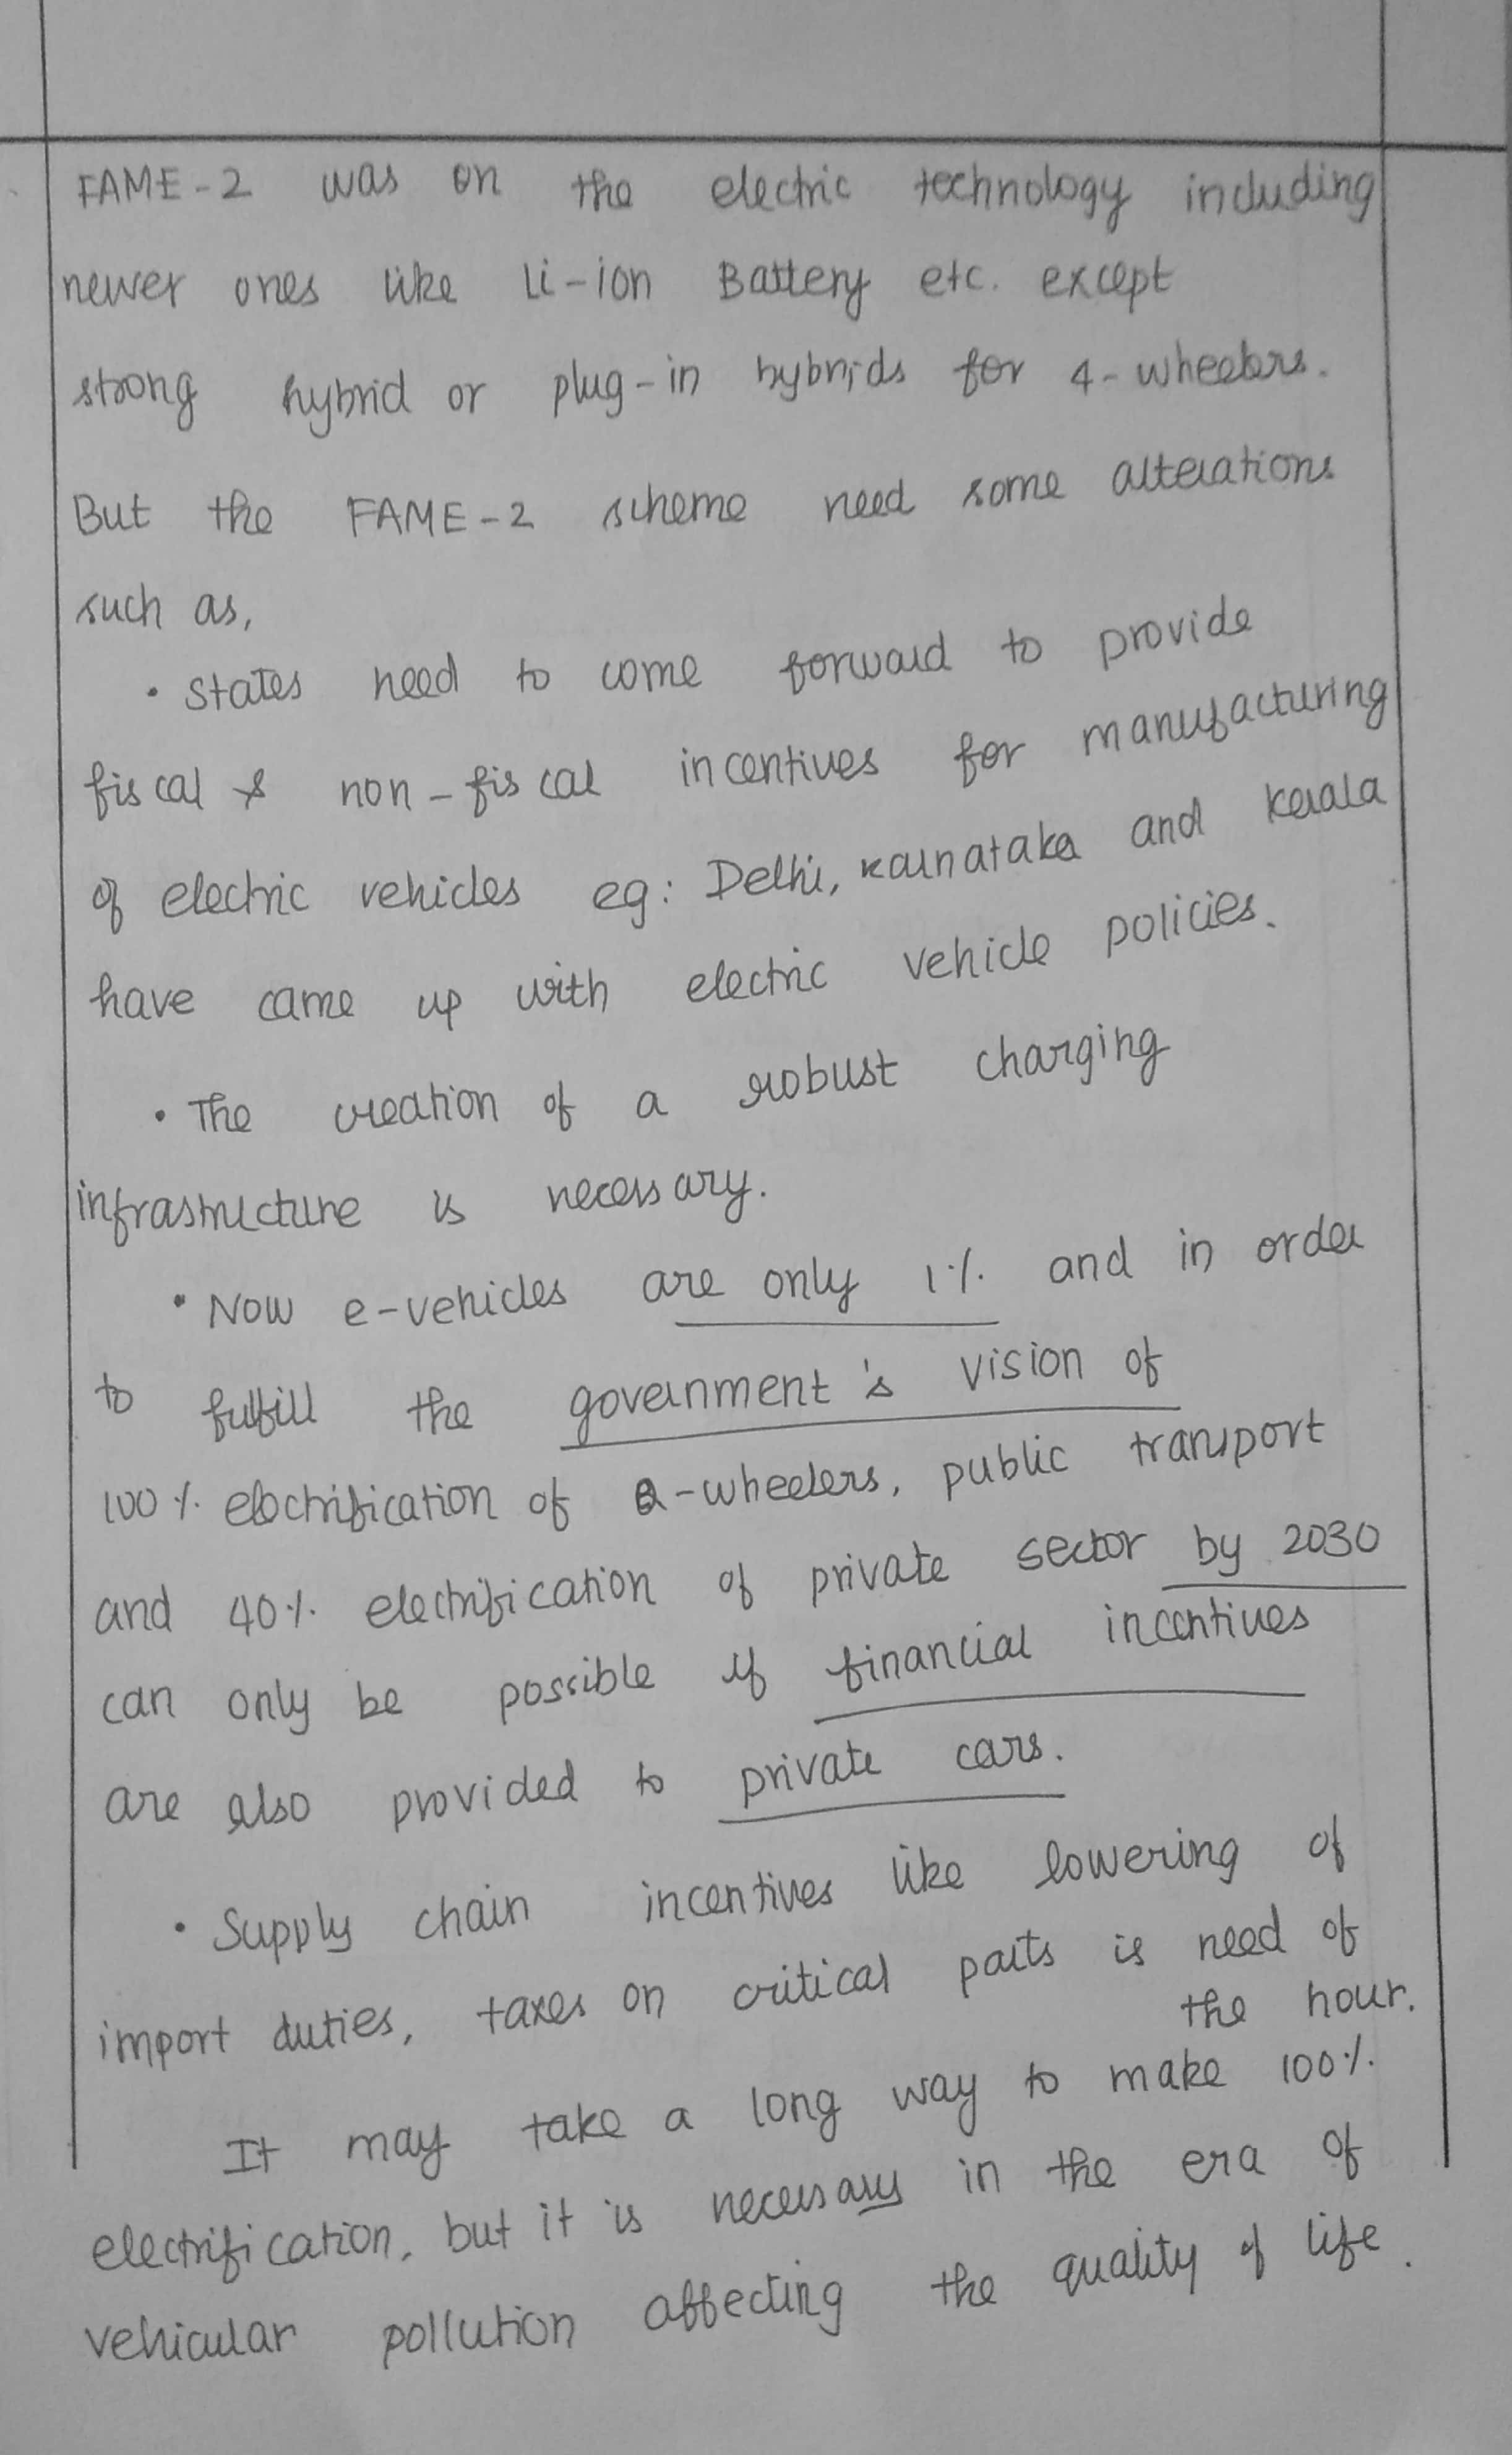 FAME-2 was on the electric technology including
newer ones like Li-ion Battery etc. except
strong hybrid or plug-in hybrids for 4-wheelers.
But the FAME-2 scheme need some alterations
such as,
• States need to come forward to provide
fiscal & non-fiscal incentives for manufacturing
of electric vehicles eg: Delhi, Karnataka and Kerala
have came up with electric vehicle policies.
• The creation of a robust charging
infrastructure is necessary.
• Now e-vehicles are only 1% and in order
to fulfill the government's vision of
100% electrification of 2-wheelers, public transport
and 40% electrification of private sector by 2030
can only be possible if financial incentives
are also provided to private cars.
• Supply chain incentives like lowering of
import duties, taxes on critical parts is need of
the hour.
It may take a long way to make 100%
electrification, but it is necessary in the era of
vehicular pollution affecting the quality of life.